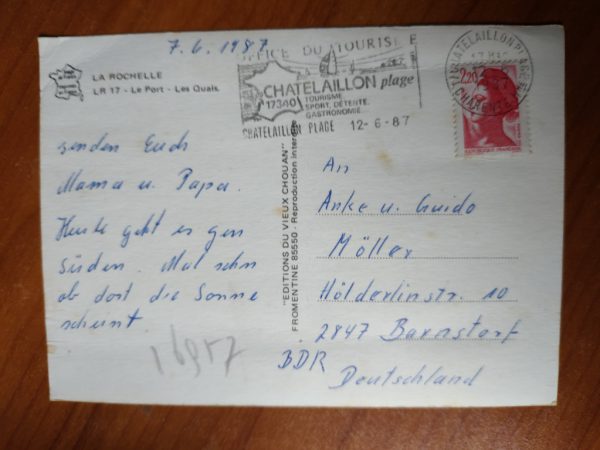 7.6.1987
LA ROCHELLE
LR 17 - Le Port - Les Quais.
OFFICE DU TOURISME
CHATELAILLON plage
17340
TOURISME
SPORT, DÉTENTE
GASTRONOMIE
CHATELAILLON PLAGE 12-6-87
2,20
senden Euch
Mama u. Papa.
Heute geht es gen
Süden. Mal sehn
ob dort die Sonne
scheint
"EDITIONS DU VIEUX CHOUAN"
FROMENTINE 85550 - Reproduction interdite
An
Anke u. Guido
Möller
Hölderlinstr. 10
2847 Barnstorf
BDR
Deutschland